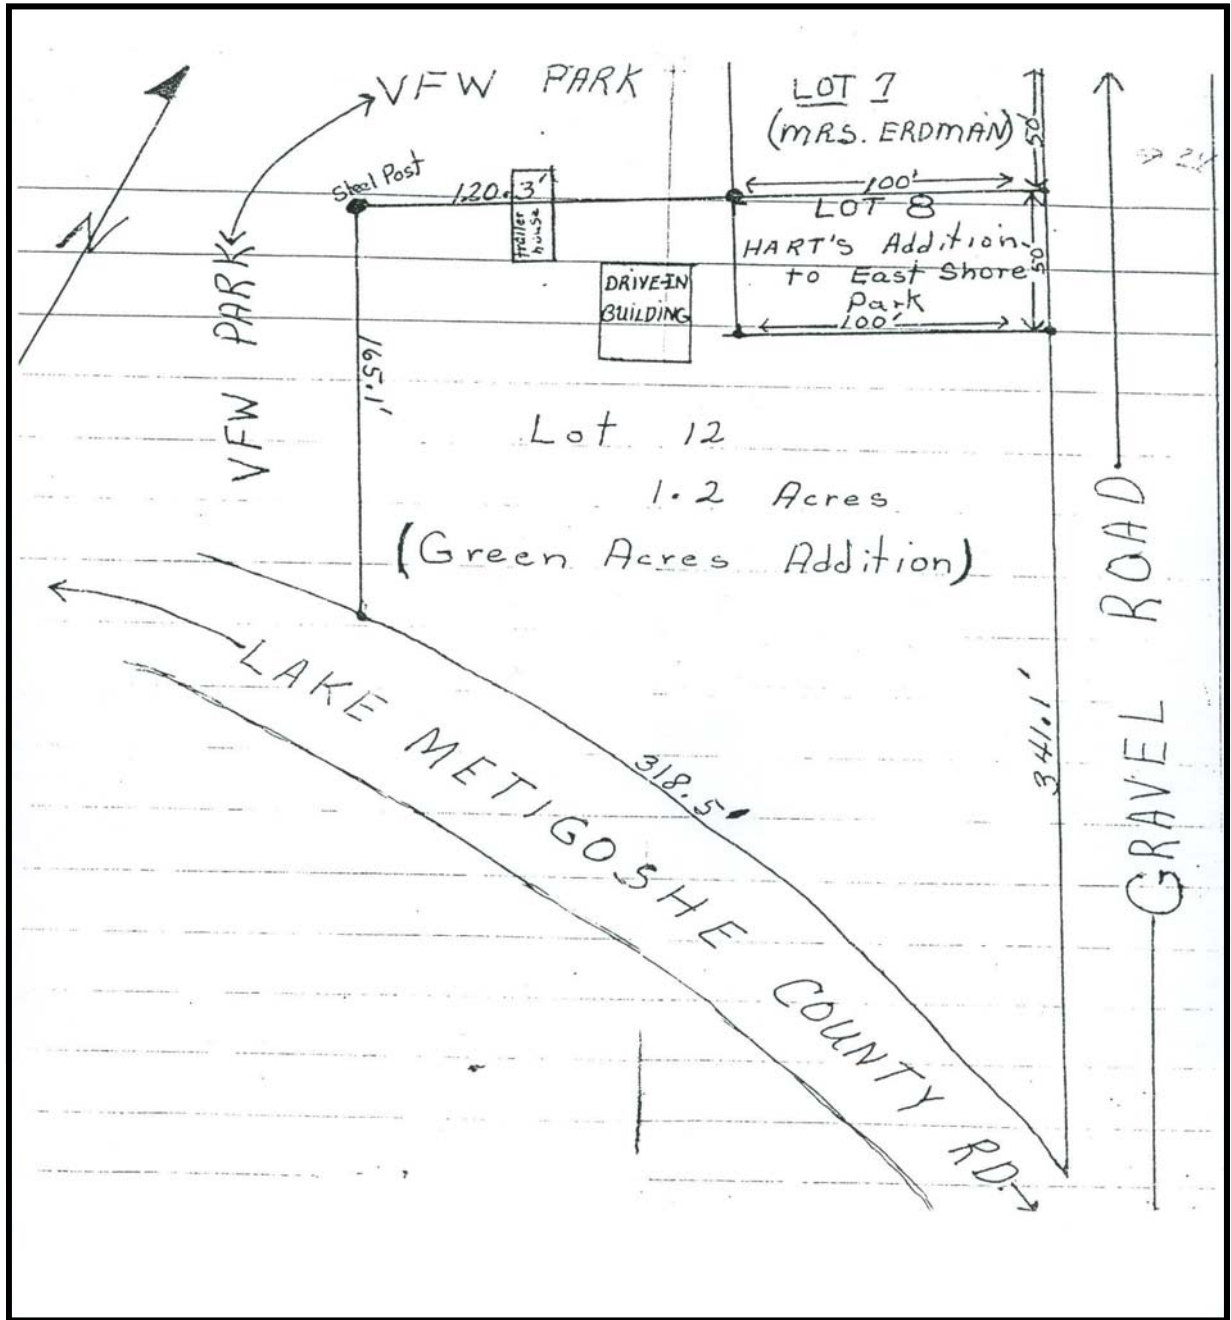 VFW PARK
LOT 7
(MRS. ERDMAN)
50'
Steel Post
120.3'
trailer
house
100'
LOT 8
HART'S Addition
to East Shore
Park
50'
100'
DRIVE-IN
BUILDING
N
VFW PARK
165.1'
Lot 12
1.2 Acres
(Green Acres Addition)
LAKE METIGOSHE COUNTY RD.
318.5'
341.1'
GRAVEL ROAD